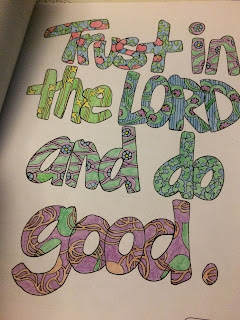 Trust in
the LORD
and do
good.